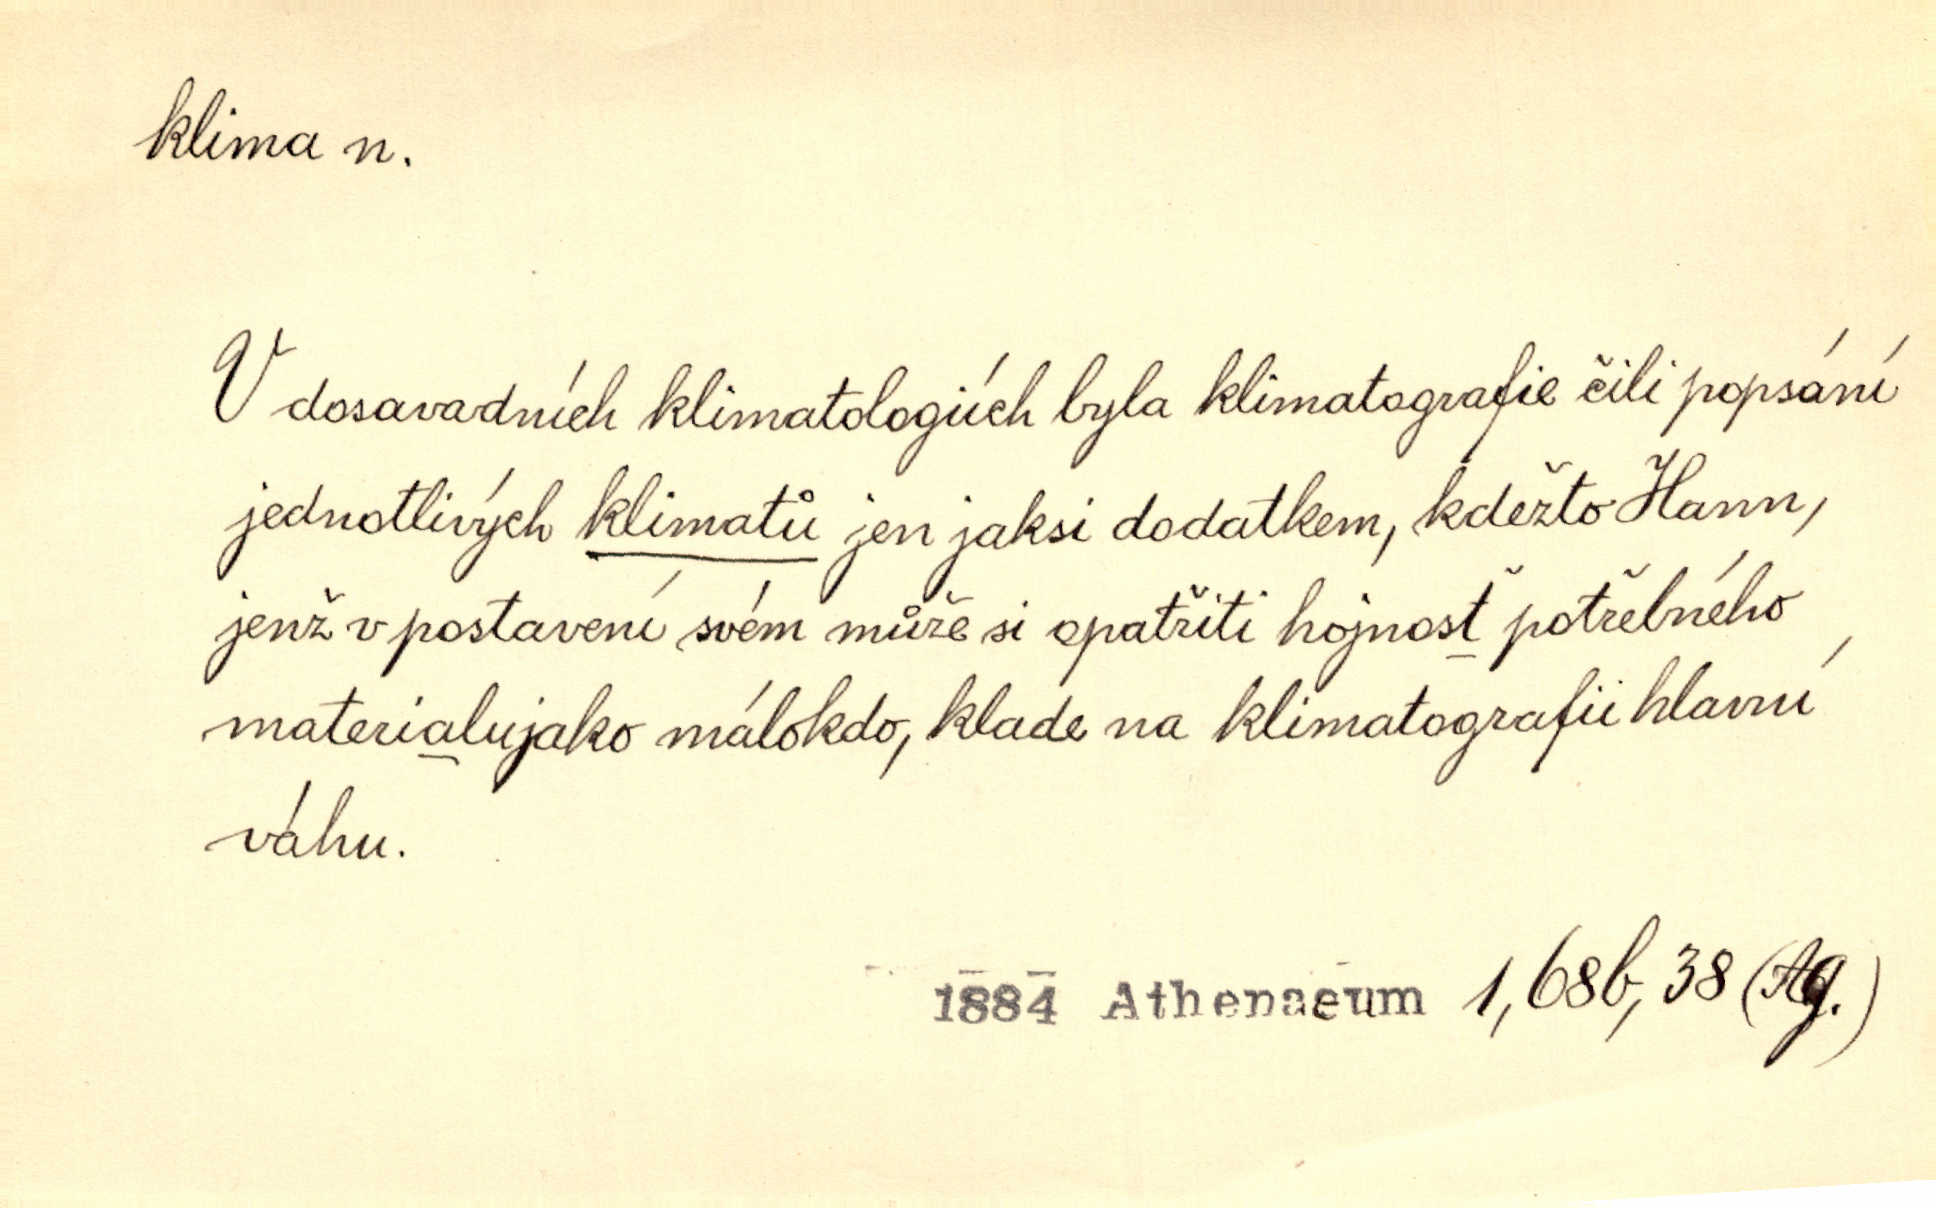 klima n.
V dosavadních klimatologiích byla klimatografie čili popsání
jednotlivých klimatů jen jaksi dodatkem, kdežto Hann,
jenž v postavení svém může si opatřiti hojnosť potřebného
materialu jako málokdo, klade na klimatografii hlavní
váhu.
1884 Athenaeum 1,68b,38 (Ag.)